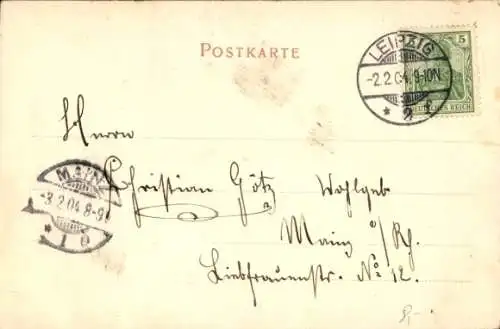 POSTKARTE
5
DEUTSCHES REICH
LEIPZIG
-2.2.04. 9-10N.
* 2
Herrn
Christian Götz Wohlgeb
Mainz a/Rh.
Liebfrauenstr. No 12.
MAINZ
-3.2.04. 8-9
* 1
8,-